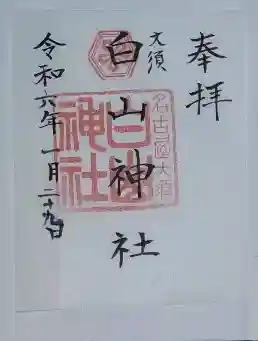 奉拝
大須
白山神社
令和六年一月二十九日
名古屋大須
白山
神社